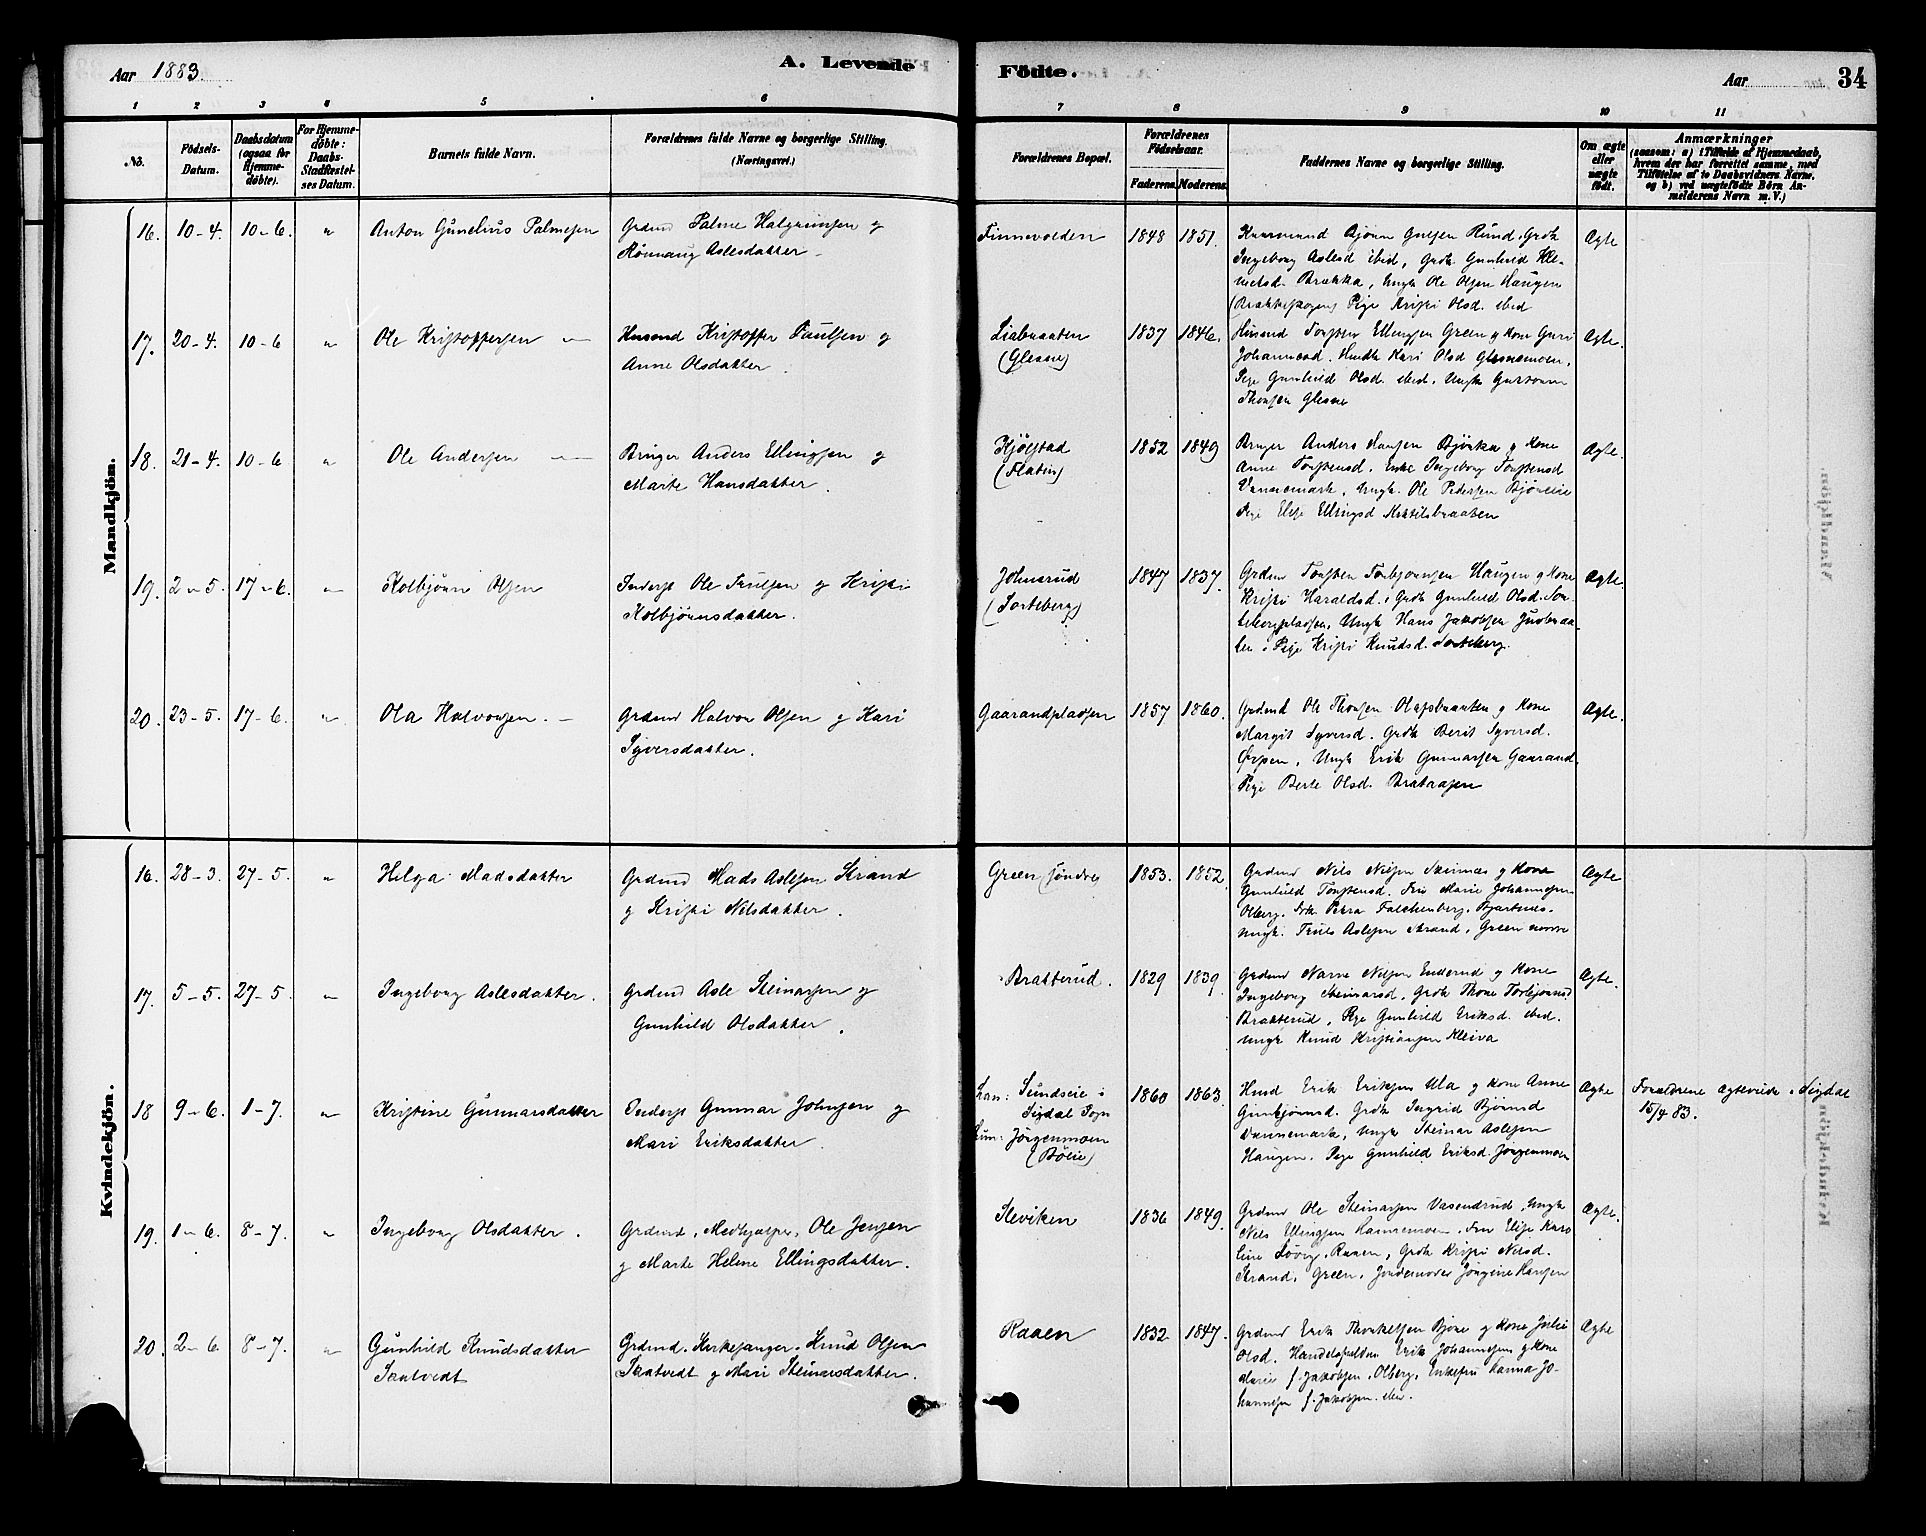 Aar 1883.
A. Levende
Födte.
Aar
34
1 2 3 4 5 6 7 8 9 10 11
No.
Födsels-
Datum.
Daabsdatum
(ogsaa for
Hjemme-
döbte).
For Hjemme-
döbte:
Daabs-
Stadfæstel-
ses Datum.
Barnets fulde Navn.
Forældrenes fulde Navne og borgerlige Stilling.
(Næringsvei.)
Forældrenes Bopæl.
Forældrenes
Födselsaar.
Faderens. Moderens.
Faddernes Navne og borgerlige Stilling.
Om ægte
eller
uægte
født.
Anmærkninger
(saasom: a) i Tilfælde af Hjemmedaab,
hvem der har forrettet samme, med
Tilføielse af to Daabsvidners Navne,
og b) ved uægtefødte Börn An-
melderens Navn m. V.)
Mandkjön.
16. 10-4. 10-6. " Anton Gunelius Palmesen
Grdmd Palme Halgrimsen og
Rønnaug Aslesdatter
Finnevolden 1848 1851.
Bjørn Rund. Grdk
Ingeborg Aslesd ibid, Grdk Gunhild Kle-
metsd. Brække, Ungk Ole Olsen Haugen
Pige Kristi Olsd. ibid
Ægte
17. 20-4. 10-6 " Ole Kristoffersen
Husmd Kristoffer Paulsen og
Anne Olsdatter.
Liabraaten
(Glesne)
1837 1846.
Husmd Torsten Ellingsen Green og Kone Guri
Johannesd. Kari Olsd Glesnemoen,
Pige Gunhild Olsd. ibid, Ungk
Glesne
Ægte.
18. 21-4. 10-6 " Ole Andersen
Bruger Anders Ellingsen og
Marte Hansdatter.
Kjølstad
(Flatin)
1852 1849
Bruger Anders Hansen Bjørka og Kone
Anne Torstensd. Enke Ingeborg Torstensd
Vannemark, Ungk. Ole Pedersen
Pige Else Ellingsd
Ægte.
19. 2-5. 17-6. " Kolbjørn Olsen
Inderst Ole Trulsen og Kristi
Kolbjørnsdatter.
Johnsrud
(Sorteberg)
1847 1837.
Grdmd Torsten Torbjørnsen Haugen og Kone
Kristi Haraldsd., Grdk Gunhild Olsd. Sor-
tebergpladsen, Ungk Hans Jakobsen
Pige Kristi Knudsd. Sorteberg.
Ægte.
20. 23-5. 17-6. " Ola Halvorsen.
Grdmd Halvor Olsen og Kari
Syversdatter.
Gaarandpladsen 1857 1860.
Grdmd Ole Olafsbraaten og Kone
Margit Syversd. Grdk Berit Syversd.
Ørpen, Ungk Erik Gunnarsen Gaarand.
Pige Berte Olsd. Brataasen
Ægte.
Kvindekjön.
16. 28-3. 27-5. " Helga Madsdatter
Grdmd Mads Aslesen Strand
og Kristi Nilsdatter.
Green søndre 1853. 1852.
Grdmd Nils Nilsen Skinnes og Kone
Gunhild Torstensd. Fru Marie Johannesen
Olberg. Frk Petra Falchenberg, Bjertnes.
Ungk. Truls Aslesen Strand, Green
Ægte
17. 5-5. 27-5. " Ingeborg Aslesdatter.
Grdmd Asle Steinarsen og
Gunhild Olsdatter.
Bratterud. 1829 1839.
Grdmd Narve Nilsen Enderud og Kone
Ingeborg Steinarsd, Grdk Thone Torbjørnsd
Bratterud, Pige Gunhild Eriksd. ibid.
Ungk Knud Kristiansen Kleiva
Ægte.
18 9-6. 1-7. " Kristine Gunnarsdatter
Inderst Gunnar Johnsen og
Mari Eriksdatter.
Han: Sundseie i
Sigdal Sogn
Hun: Jørgenmoen
(Bøeie)
1860 1863.
Husmd Erik Eriksen Ula og Kone Anne
Gunbjørnsd. Grdk Ingrid Bjørnsd
Vannemark, Ungk Steinar Aslesen
Haugen. Pige Gunhild Eriksd. Jørgenmoen
Ægte
Forældrene ægteviede i Sigdal
15/4 83.
19. 1-6. 8-7. " Ingeborg Olsdatter.
Grdmd, Medhjælper, Ole Jensen
og Marte Helene Ellingsdatter.
Sleviken 1836 1849.
Grdmd Ole Steinarsen Vasendrud, Ungk
Nils Ellingsen Fru Elise Karo-
line Raaen, Grdk Kristi Nilsd.
Strand, Green, Jordemoder Jørgine Hansen
Ægte.
20. 2-6. 8-7. " Gunhild Knudsdatter
Saatvedt
Grdmd. Kirkesanger. Knud Olsen
Saatvedt og Mari Steinarsdatter.
Raaen 1832. 1847.
Grdmd Erik Thorkelsen Bjøre og Kone Julie
Olsd. Erik Johannesen og Kone
Marie f. Jakobsen, Olberg, Enkefru Hanna Jo-
hannesen f. Jakobsen. ibid.
Ægte